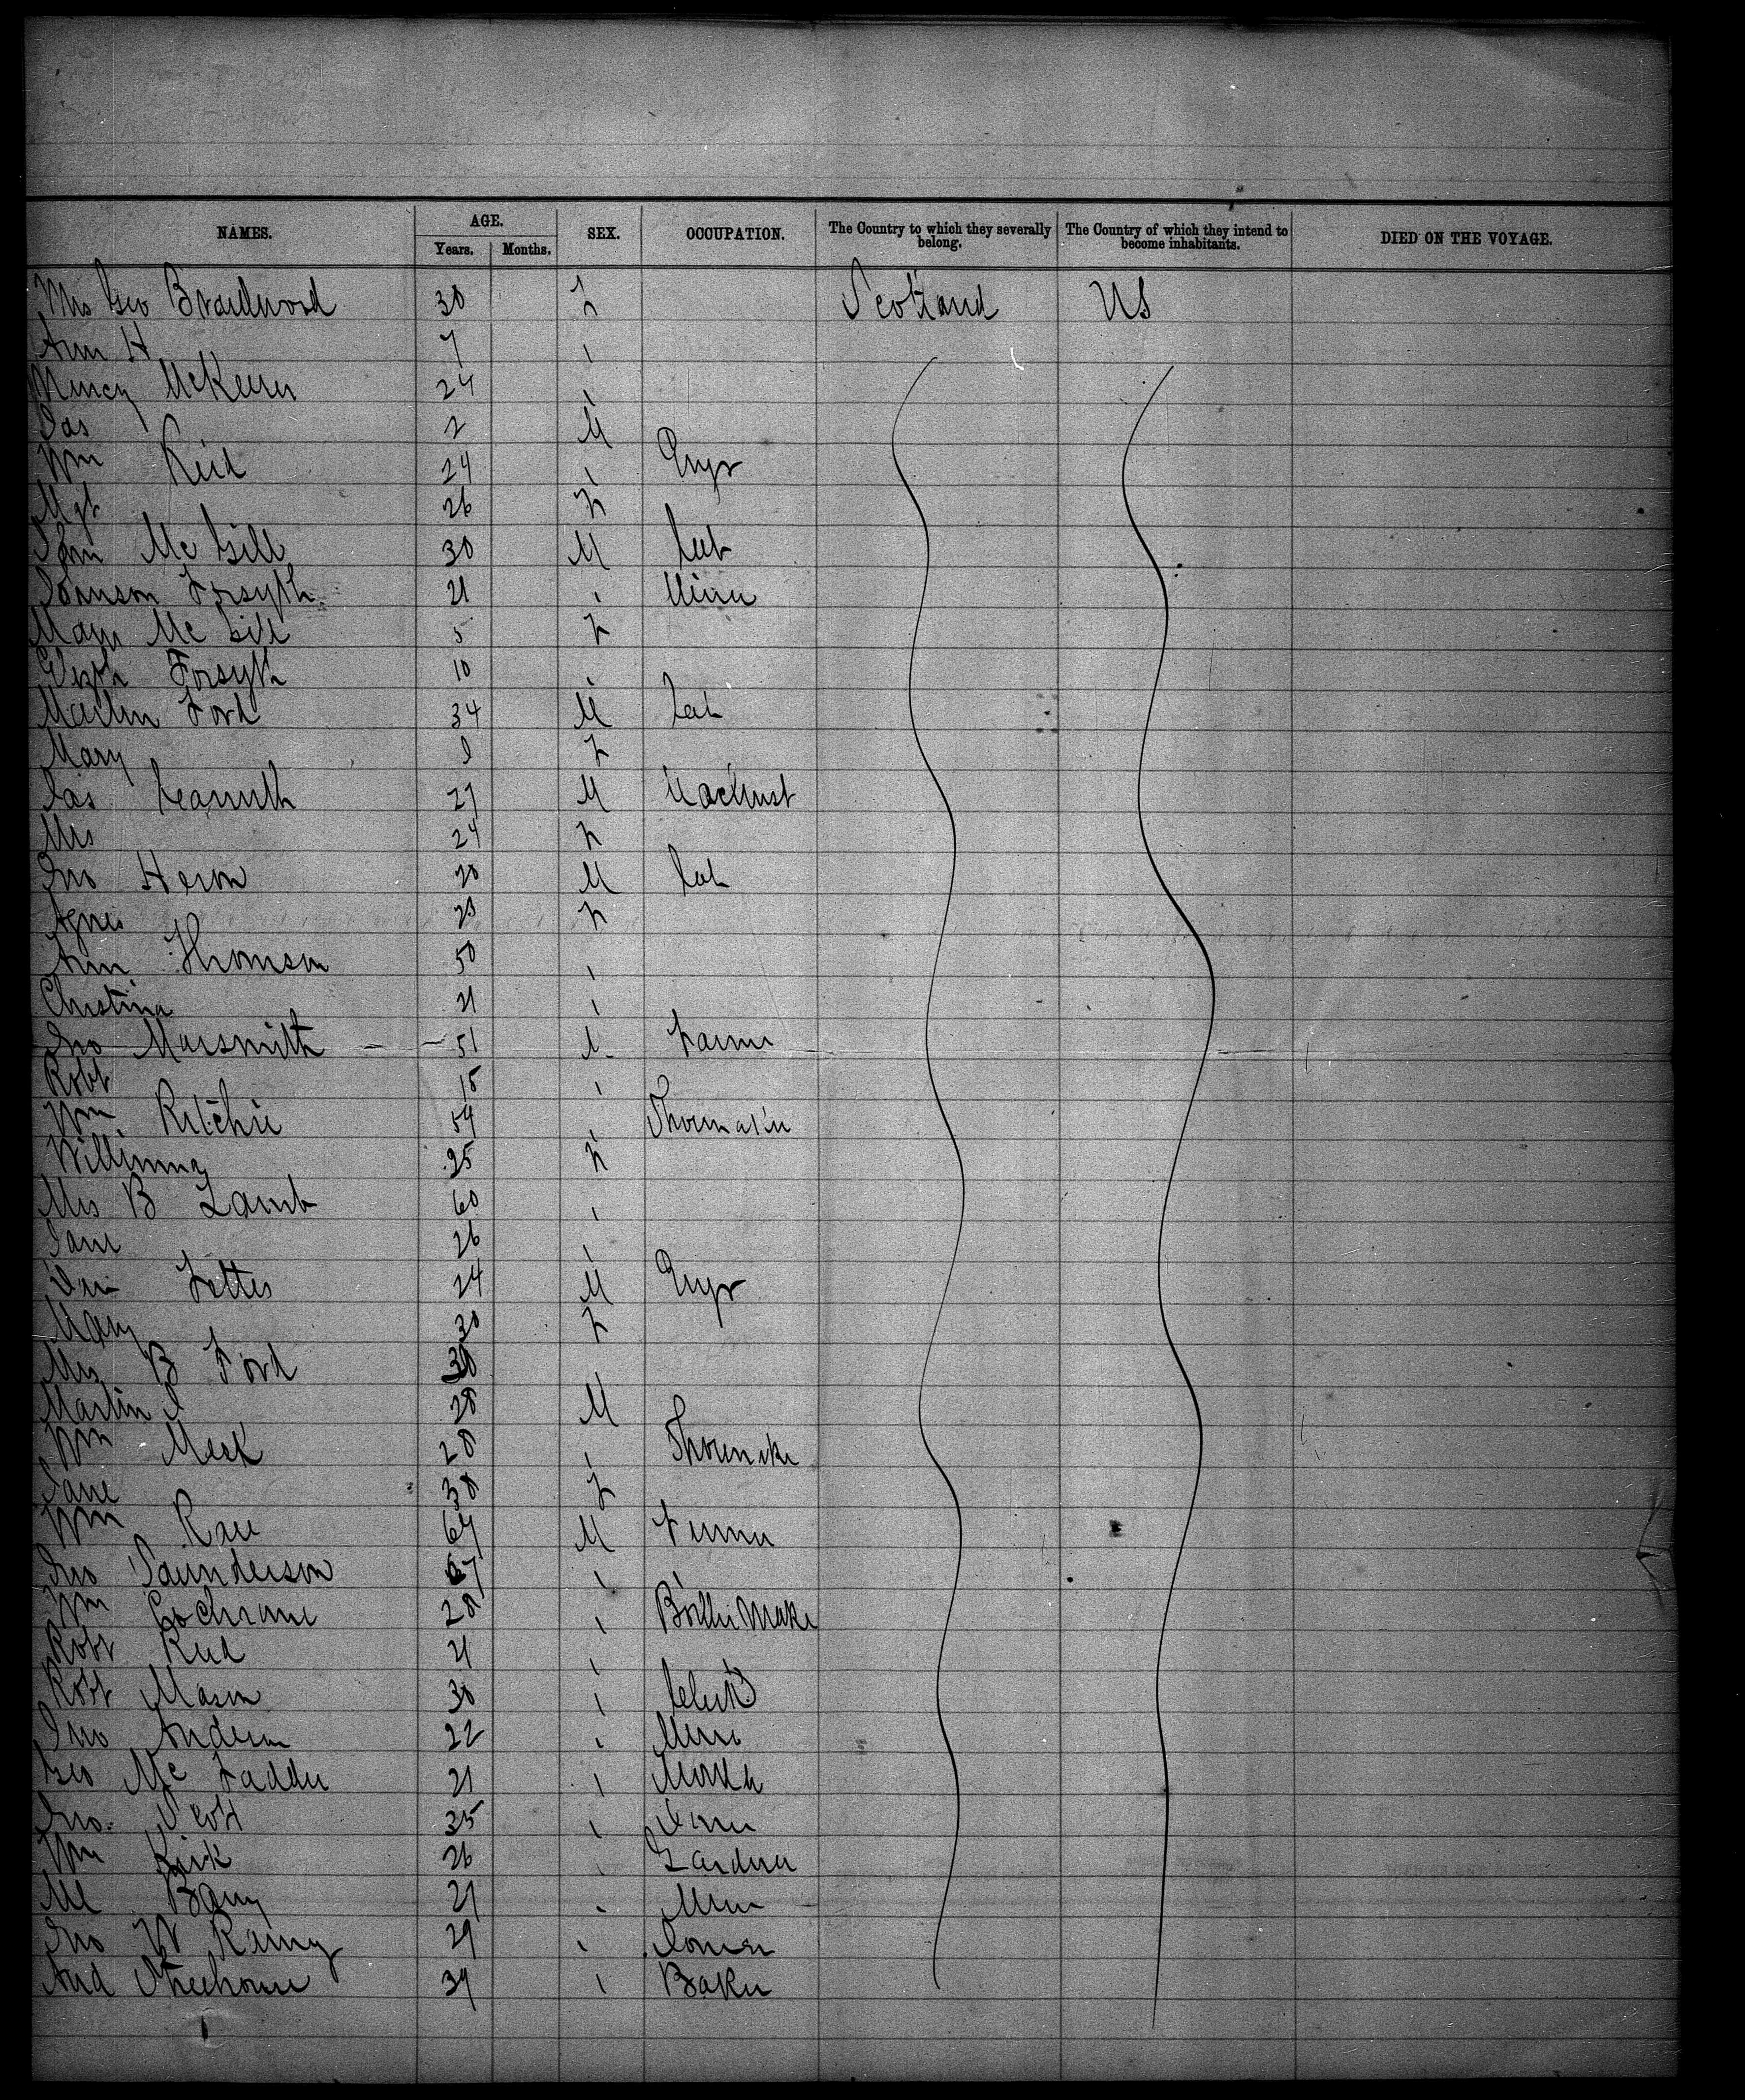 NAMES. AGE. SEX. OCCUPATION. The Country to which they severally belong. The Country of which they intend to become inhabitants. DIED ON THE VOYAGE.
Years. Months.
Mrs Geo Braidwood 30 F Scotland US
Ann H 7 "
McKeen 24 "
Jas 2 M
Wm Reid 24 " Engr
Mgt 26 F
Jn McGill 30 M Lab
Forsyth 21 " Miner
Mary McGill 5 F
Forsyth 10 "
Martin Ford 34 M Lab
Mary F
Jas 27 M Machinst
Mrs 24 F
Jno Heron 20 M Lab
Agnes 23 F
Ann Thomson 50 "
Christina 21 "
Jno Marsmith 51 M Farmer
Robt 15 "
Wm Ritchie 54 " Shoemaker
Willimina 25 F
Mrs B Lamb 60 "
Jane 26 "
Fettes 24 M Engr
Mary 30 F
Mrs B Ford 30
Martin J 28 M
Wm Meek 28 " Shoemake
Jane 30 F
Wm Rae 64 M Farmer
Jno Saunderson 67 "
Wm Cochrane 28 " Boiller Make
Robt Reid 21 "
Robt Mason 30 " Clerk
Jno Anderson 22 " Miner
Geo McFadden 21 "
Jno. Scott 35 "
Wm Kirk 26 " Gardner
Barry 27 " Miner
Jno W 29 "
And 39 " Baker